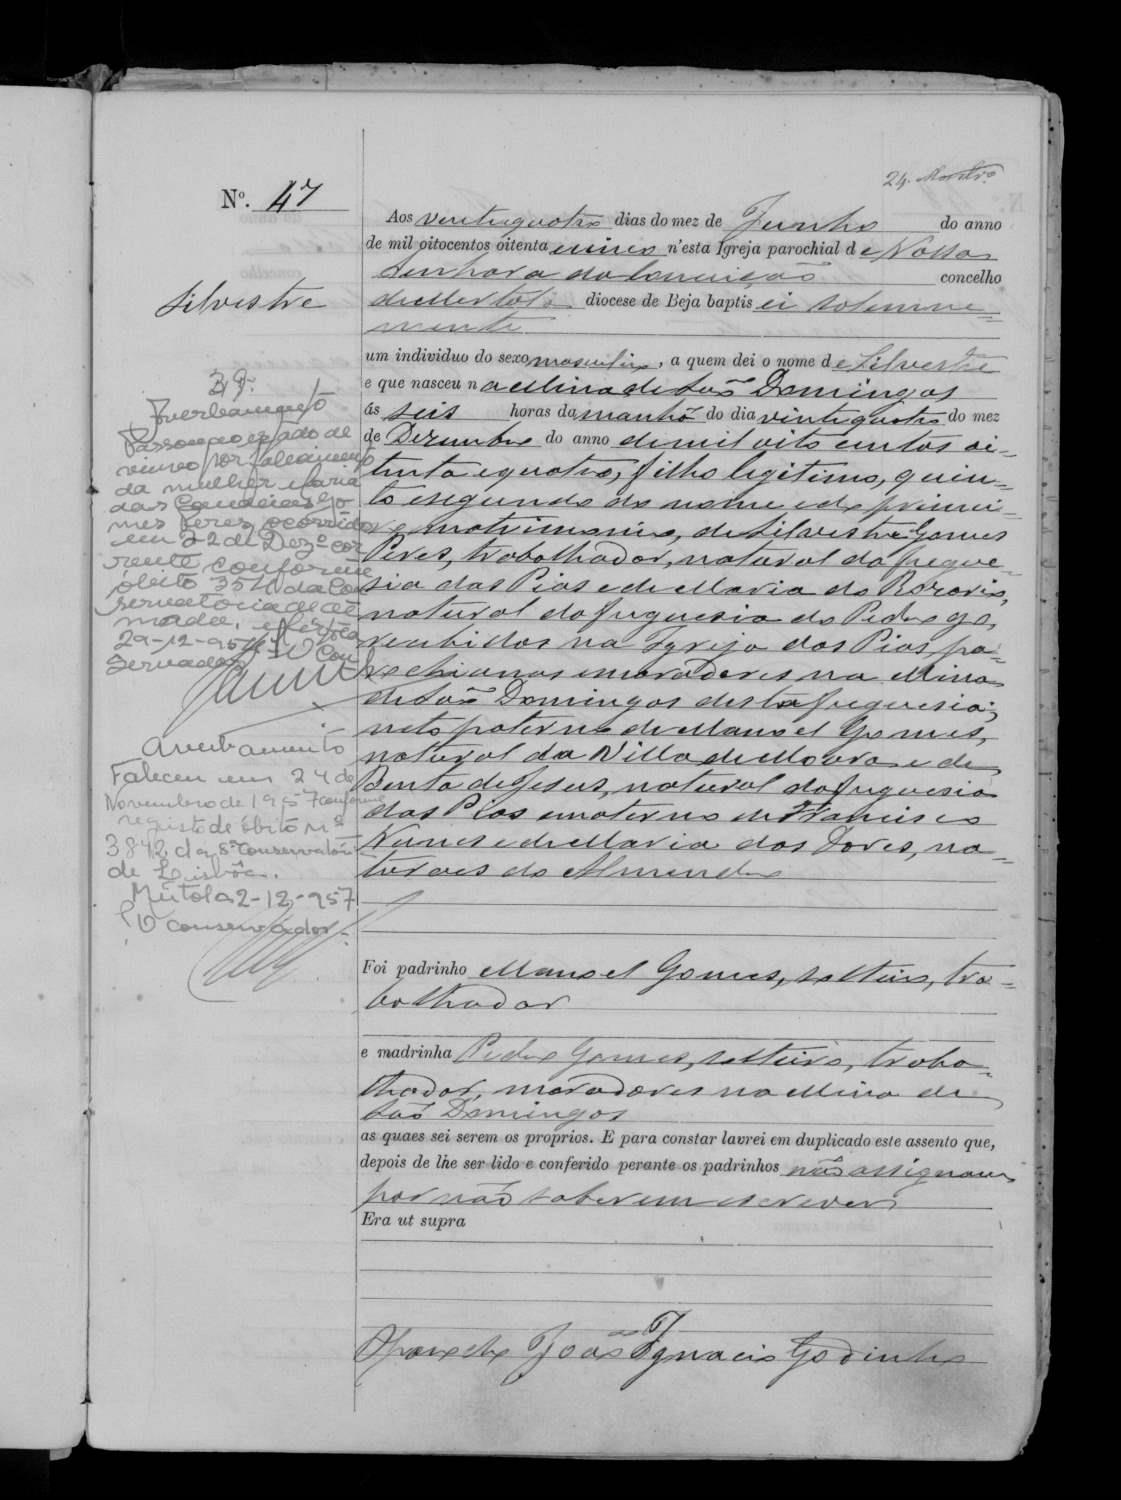 24.
Nº. 47
Silvestre
Aos vintequatro dias do mez de Junho do anno
de mil oitocentos oitenta e cinco n'esta Igreja parochial de Nossa
Senhora da Conceição concelho
de Mertola diocese de Beja baptisei solemne=
mente
um individuo do sexo masculino, a quem dei o nome de Silvestre
e que nasceu na Mina de São Domingos
ás seis horas da manhã do dia vintequatro do mez
de Dezembro do anno de mil oito centos oi=
tenta e quatro, filho legitimo, quin=
to e segundo do nome e do primei=
ro matrimonio, de Silvestre Gomes
Pires, trabalhador, natural da fregue=
sia das Pias e de Maria do Rozario,
natural da freguesia do Pedrogo,
recebidos na Igreja das Pias, pa=
rochianos e moradores na Mina
de São Domingos desta freguesia;
neto paterno de Manoel Gomes,
natural da Villa de Moura e de
Benta de Jesus, natural da freguesia
das Pias e materno de Francisco
Nunes e de Maria das Dores, na=
turaes de
Foi padrinho Manoel Gomes, solteiro, tra=
balhador
e madrinha Pedro Gomes, solteiro, traba=
lhador, moradores na Mina de
São Domingos
as quaes sei serem os proprios. E para constar lavrei em duplicado este assento que,
depois de lhe ser lido e conferido perante os padrinhos não assignam
por não saberem escrever
Era ut supra
O parocho João Ignacio Godinho
Averbamento
Passou ao estado de
viuvo por falecimento
da mulher Maria
das Candeias Go
mes Peres, ocorrido
em 22 de Dezº cor
rente conforme
óbito 354 da Con
servatória de Al
mada.
29-12-95
servador
Averbamento
Faleceu em 24 de
Novembro de 1957 conforme
registo de óbito nº
3842, da 8ª Conservatória
de Lisbôa.
Mértola 2-12-957
O conservador